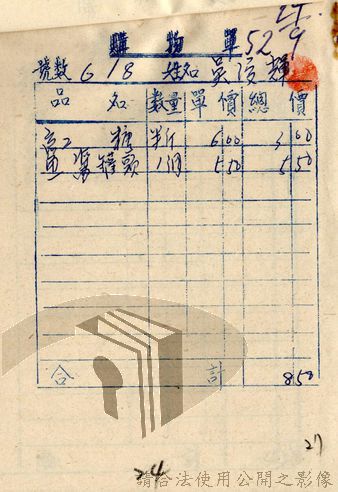 購物單
52 9
號數 618 姓名 吳俊輝
品名 數量 單價 總價
紅糖 半斤 6 00 3 00
魚罐頭 1個 5 50 5 50
合計 8 50
27
24
請合法使用公開之影像